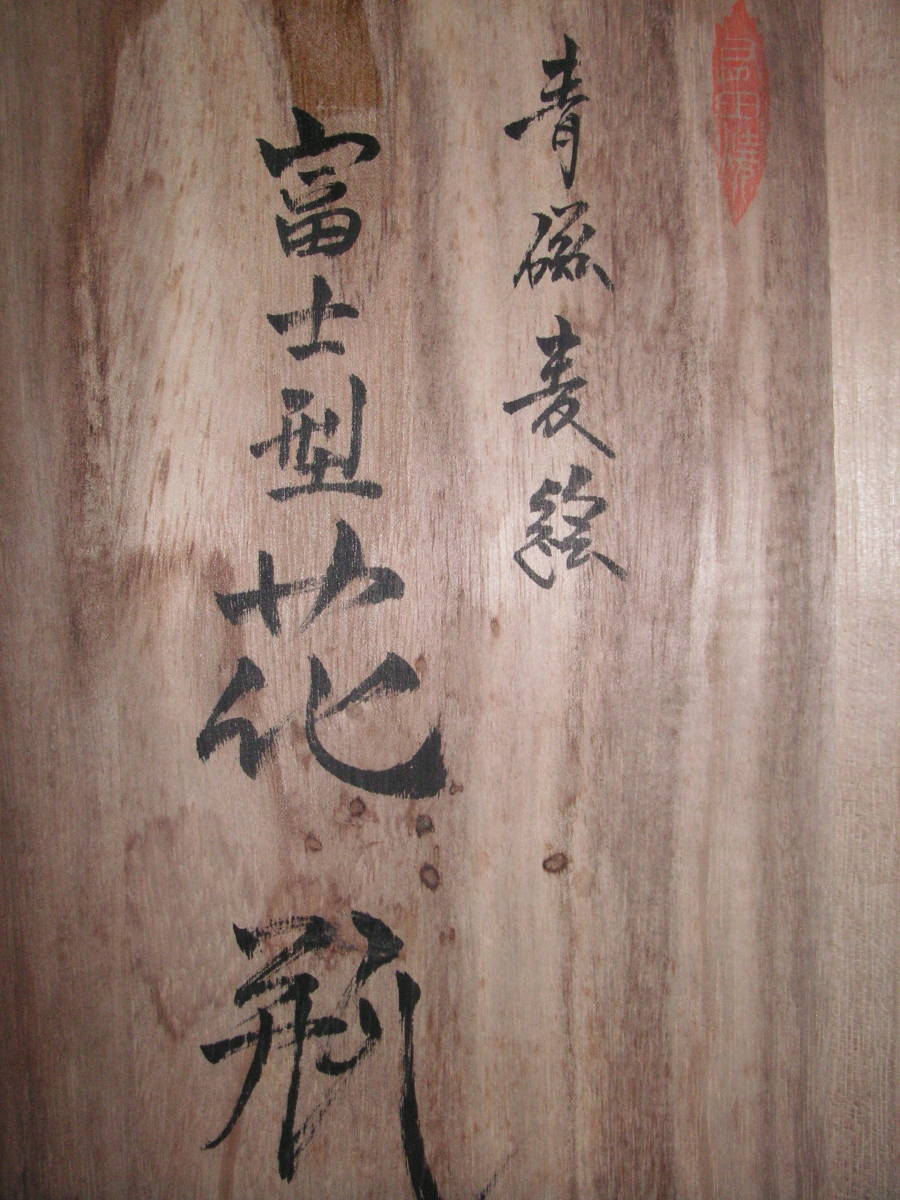 青磁麦絵
富士型花瓶